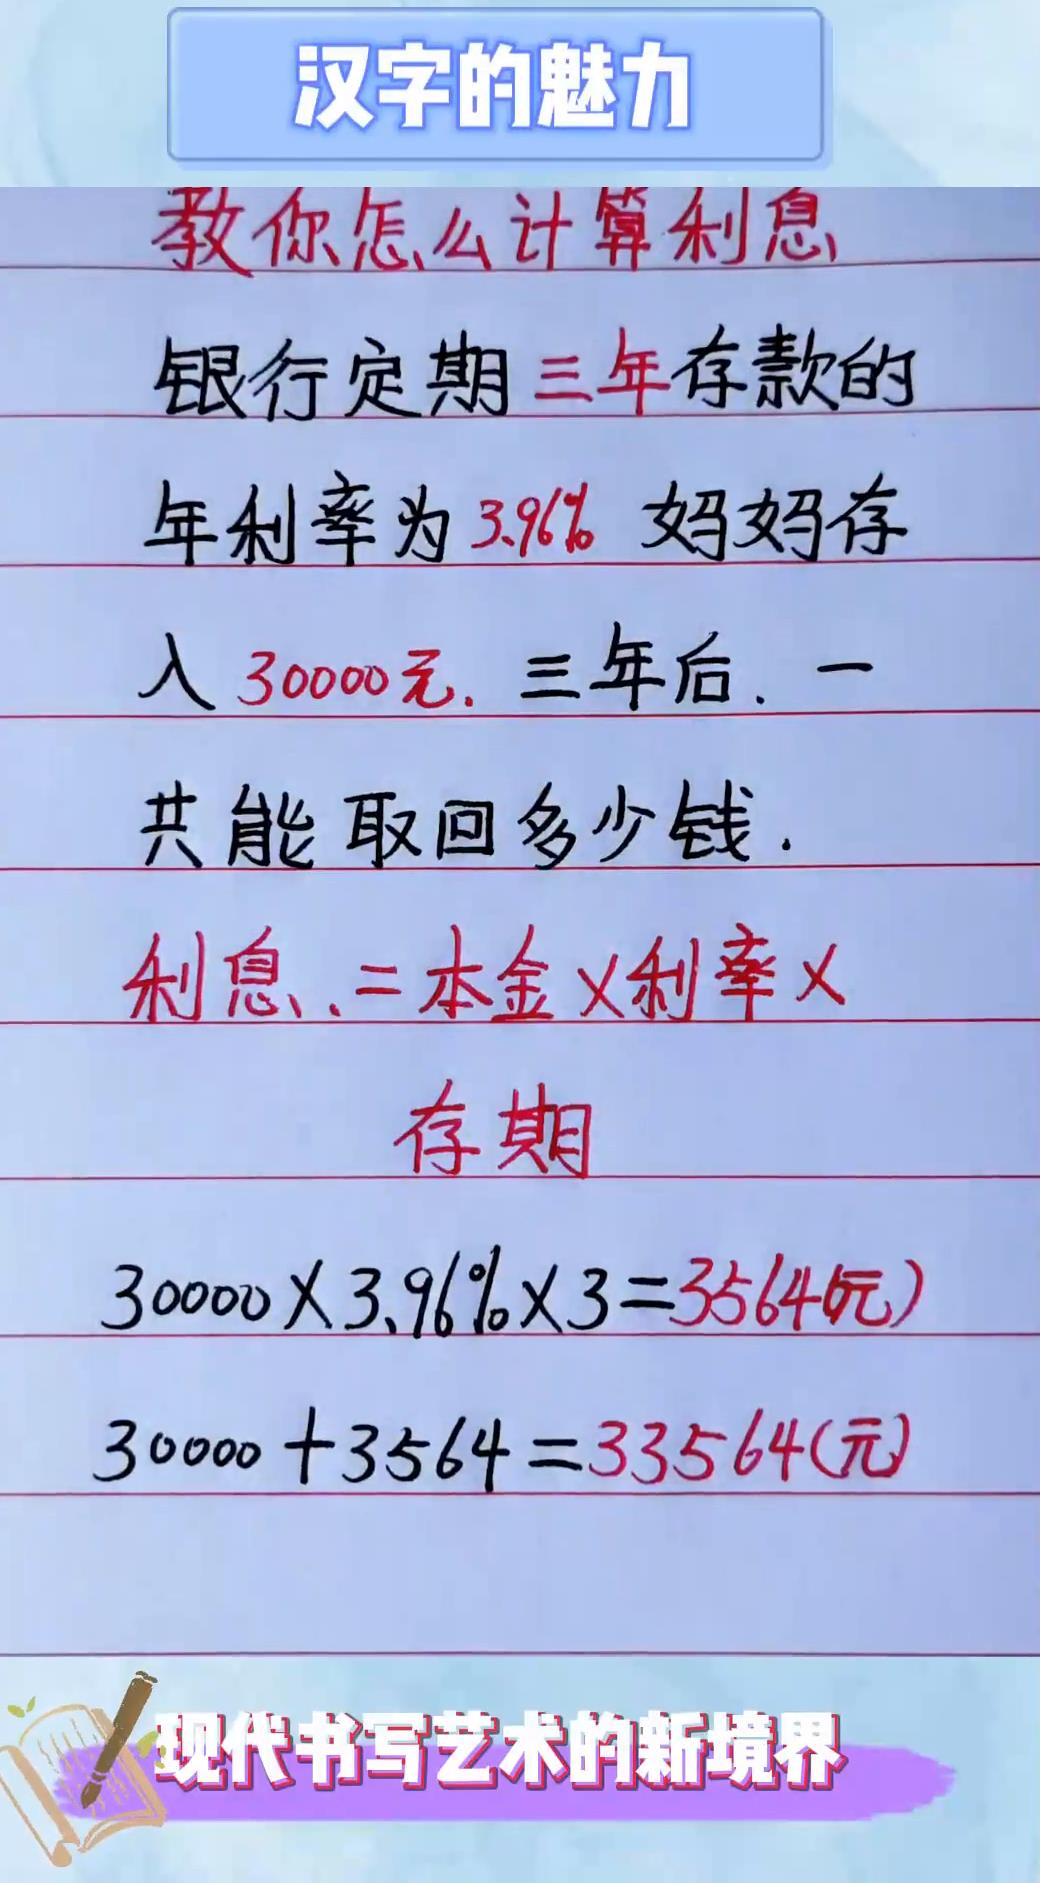 汉字的魅力
教你怎么计算利息
银行定期三年存款的
年利率为3.96% 妈妈存
入30000元. 三年后. 一
共能取回多少钱.
利息.=本金×利率×
存期
30000×3.96%×3=3564(元)
30000+3564=33564(元)
现代书写艺术的新境界